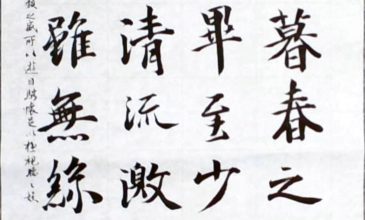 暮春之
畢至少
清流激
雖無絲
之盛所以遊目騁懷足以極視聽之娛